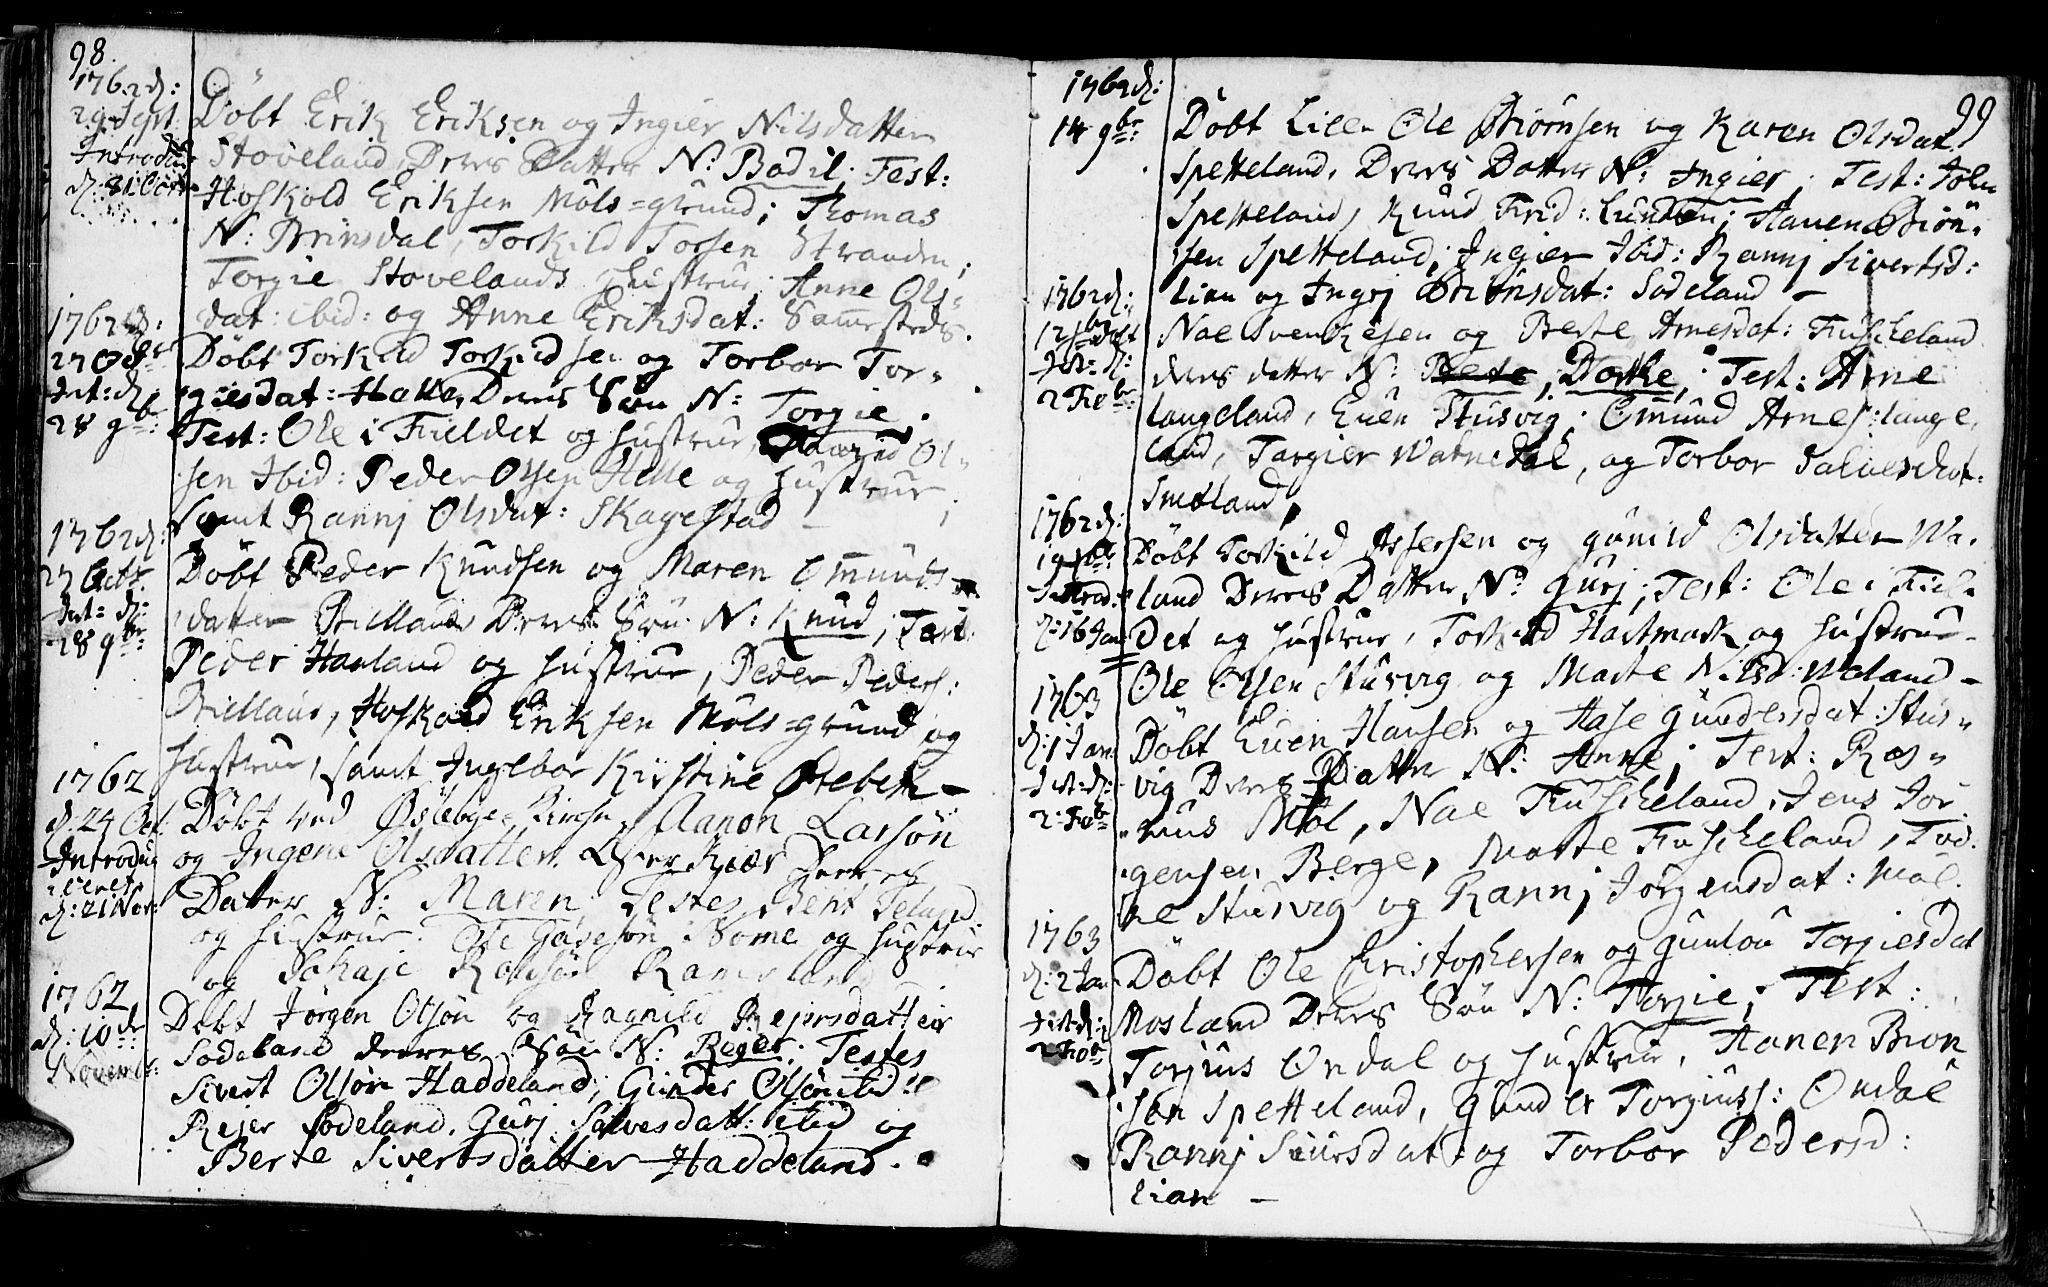 98.
1762 d:
29 Sept.
Introdu:
d: 31 Octb.
Döbt Erik Eriksen og Ingier Nilsdatter
Stoveland, Deres Datter N: Bodil. Test:
Hoskold Eriksen Möls=grund; Thomas
N: Brinsdal, Torkild Torsen Stranden;
Torgie Stovelands hustrue Anne Ols-
dat: ibid: og Anne Eriksdat: Samesteds.
1762 d:
27 Octbr
Int: d:
28 9br:
Döbt Torkild Torkildsen og Torbor Tor-
giesdat: Halle, Deres Sön N: Torgie.
Test: Ole i Fieldet og hustrue, Ol-
sen Ibid: Peder Olsen Helle og hustrue;
samt Rannj Olsdat: Skagestad –
1762 d:
27 Octb.
Int: d:
28 9br:
Döbt Peder Knudsen og Maren Omunds-
datter Deres Sön N: Knud; Test:
Peder Hauland og hustrue, Peder Peders:
Hoskold Eriksen Möls=grund og
hustrue, samt Ingebor Kirstine –
1762
d: 24 Oct.
Introdu
ceret
d: 21 Nov:
Döbt ved Öslebye Kirche Aanon Larsön
og Ingene Olsdatter Deres
Datter N: Maren Testes Bent
og hustrue. Ole Nome og hustrue
og
1762
d: 10de
Novemb:
Döbt Jörgen Olsön og Ragnild Rejersdatter
Södeland deres Sön N: Reger; Testes
Sivert Olsön Haddeland, Gunder Olsön ibid:
Rejer Södeland. Gurj Salvesdatt: ibid og
Berte Sivertsdatter Haddeland.
99
1762 d:
14 9br:
Döbt Lille Ole Biörnsen og Karen Olsdat:
Spetteland, Deres Datter N: Ingier; Test: John
Spetteland, Knud Frid: Lunden; Hauen Biön-
sen Spetteland; Ingier Ibid: Rannj Sivertsd:
Lian og Ingrj Brönsdat: Södeland –
1762 d:
Int: d:
2 Febr:
Noe Svenkesen og Berte Arnesdat: Fuskeland
deres datter N: Dorthe, Test: Arne
Langeland, Even Stusvig; Omund Arnes: Lange-
land, Targier Watnedal, og Torbor Salvesdat:
Smöland,
1762 d:
19
Introd:
d: 16 Jan
Döbt Torkild Assersen og Gunild Olsdatter Wa-
land Deres Datter No Gurj; Test: Ole i Fiel-
det og hustrue, Torkild Hartmark og hustrue –
Ole Olsen Stusvig og Marte Nilsd: Waland –
1763
d: 1 Jan
Int: d:
2: Febr
Döbt Even Hansen og Aase Gundersdat: Stus-
vig Deres Datter N: Anne; Test: Ras-
mus Möl, Noe Fuskeland, Jens Jör-
gensen Berge, Marte Fuskeland, Tod-
ne Stusvig og Rannj Jörgensdat: Möl.
1763
d: 2 Jan
Int: d:
2 Febr
Döbt Ole Christophersen og Gunlou Torgiesdat
Mosland Deres Sön N: Torjie; Test:
Torjius Öndal og hustrue, Hanen Biön
sen Spetteland, Gunder Torgiuss: Öndal
Rannj Siursdat og Torbor Pedersd:
Lian –